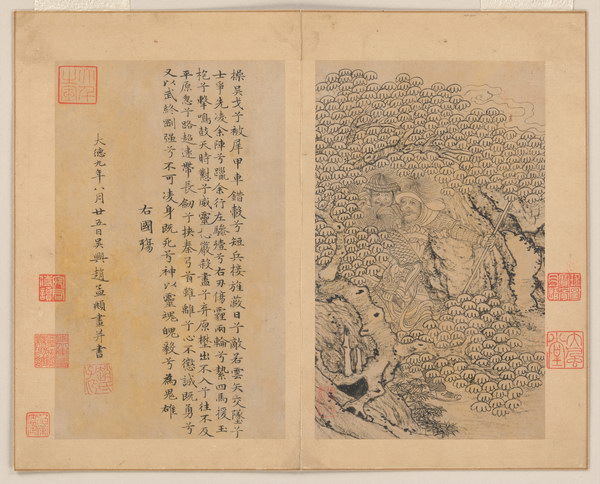 操吳戈兮被犀甲車錯轂兮短兵接旌蔽日兮敵若雲矢交墜兮
士爭先凌余陣兮躐余行左驂殪兮右刃傷霾兩輪兮縶四馬援玉
枹兮擊鳴鼓天時懟兮威靈怒嚴殺盡兮弃原壄出不入兮往不反
平原忽兮路超遠帶長劒兮挾秦弓首雖離兮心不懲誠既勇兮
又以武終剛强兮不可凌身既死兮神以靈魂魄毅兮為鬼雄
右國殤
大德九年八月廿五日吳興趙孟頫畫并書